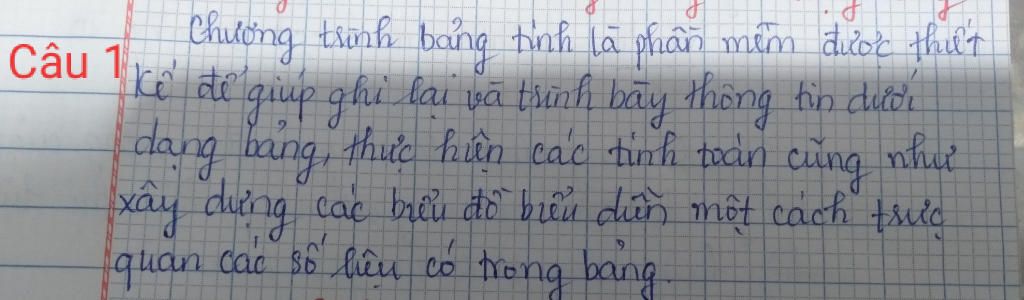 Chương trình bảng tính là phần mềm được thiết
Câu 1
kế để giúp ghi lại và trình bày thông tin dưới
dạng bảng, thực hiện các tính toán cũng như
xây dựng các biểu đồ biểu diễn một cách trực
quan các số liệu có trong bảng.